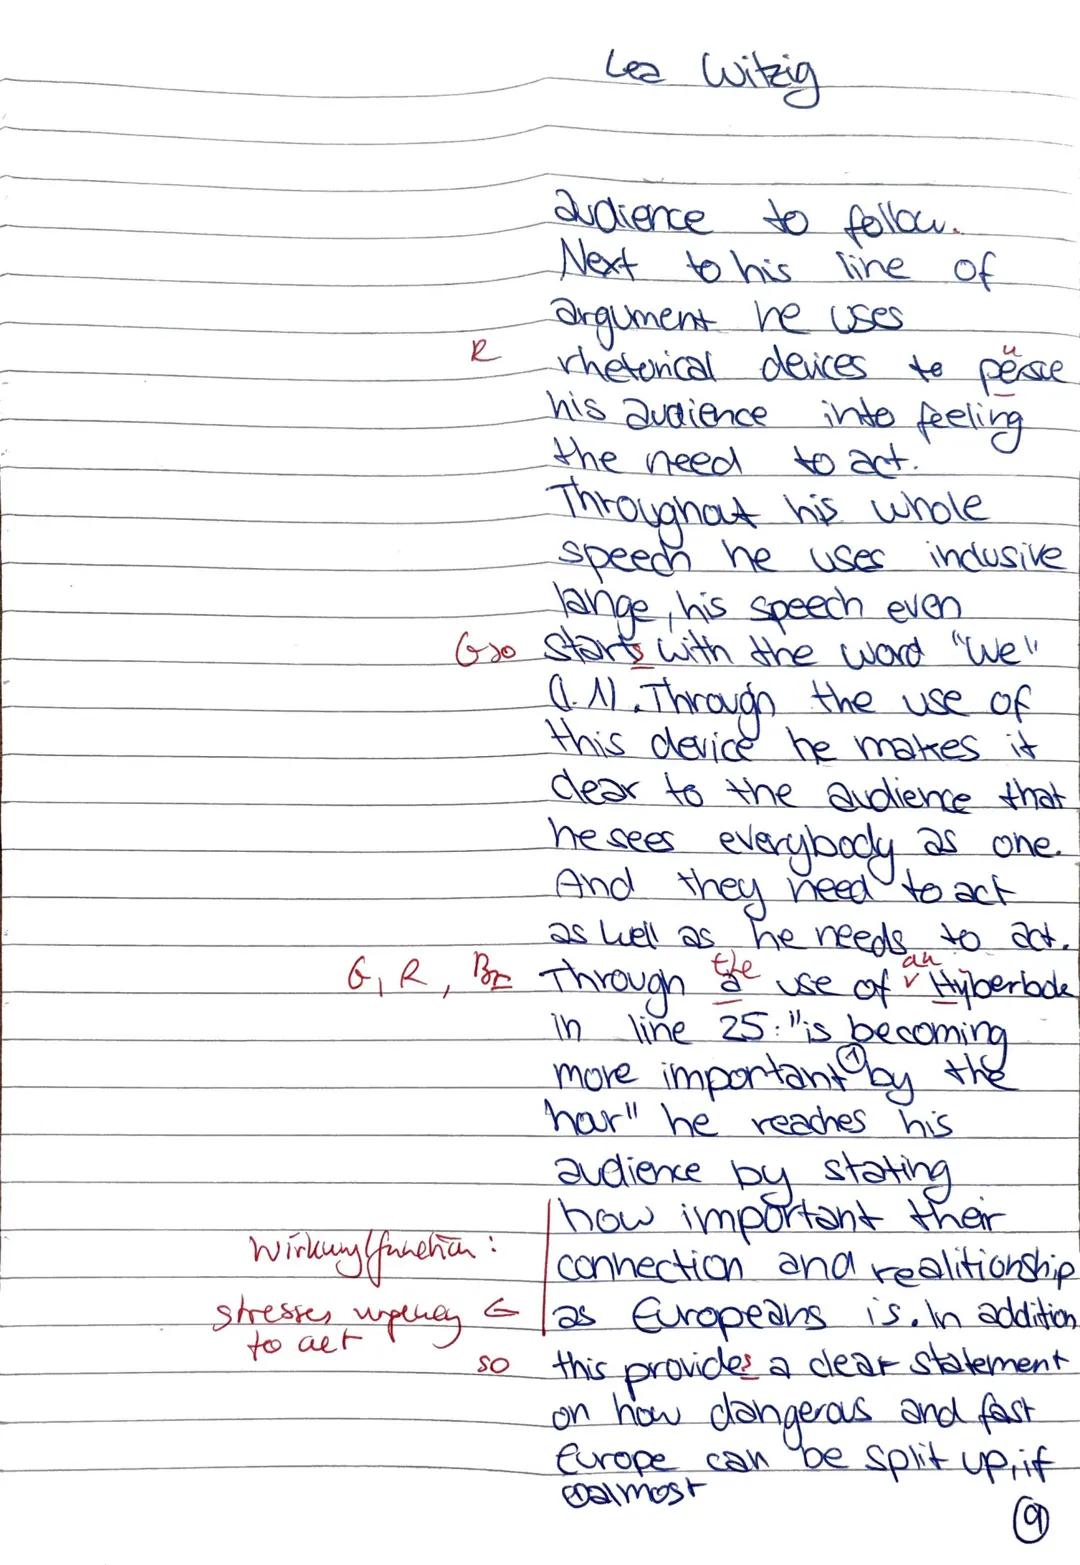 Lea Witzig
audience to follow.
Next to his line of
argument he uses
R rhetorical devices to persue
u
his audience into feeling
the need to act.
Throughout his whole
speech he uses inclusive
lange, his speech even
Gso starts with the word "We"
(l. 1). Through the use of
this device he makes it
clear to the audience that
he sees everybody as one.
And they need to act
as well as he needs to act.
the an
G, R, Bz Through a use of v Hyberbole
in line 25: "is becoming
more important ① by the
hour" he reaches his
audience by stating
how important their
Wirkung/function: connection and realitionship
stresses urgency G as Europeans is. In addition
to act
so this provides a clear statement
on how dangerous and fast
Europe can be split up, if
① almost
9